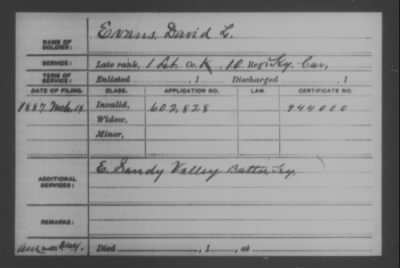 NAME OF SOLDIER: Evans, David L.
SERVICE: Late rank, 1 Lt. Co. K, 10 Reg't Ky. Cav.
TERM OF SERVICE: Enlisted , 1 Discharged , 1
DATE OF FILING. CLASS. APPLICATION NO. LAW. CERTIFICATE NO.
1887 Mch 14 Invalid, 602,828 944000
Widow,
Minor,
ADDITIONAL SERVICES: E. Sandy Valley Batt. Ky.
REMARKS:
Died , 1 , at